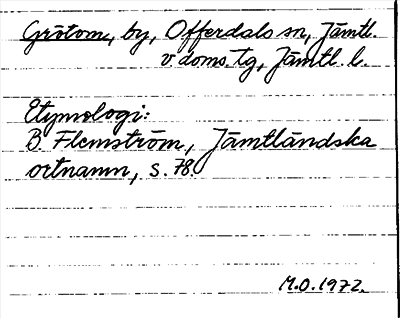 Grötom, by, Offerdals sn, Jämtl.
v doms. tg, Jämtl. l.
Etymologi:
B. Flemström, Jämtländska
ortnamn, s. 78
M.O. 1972.